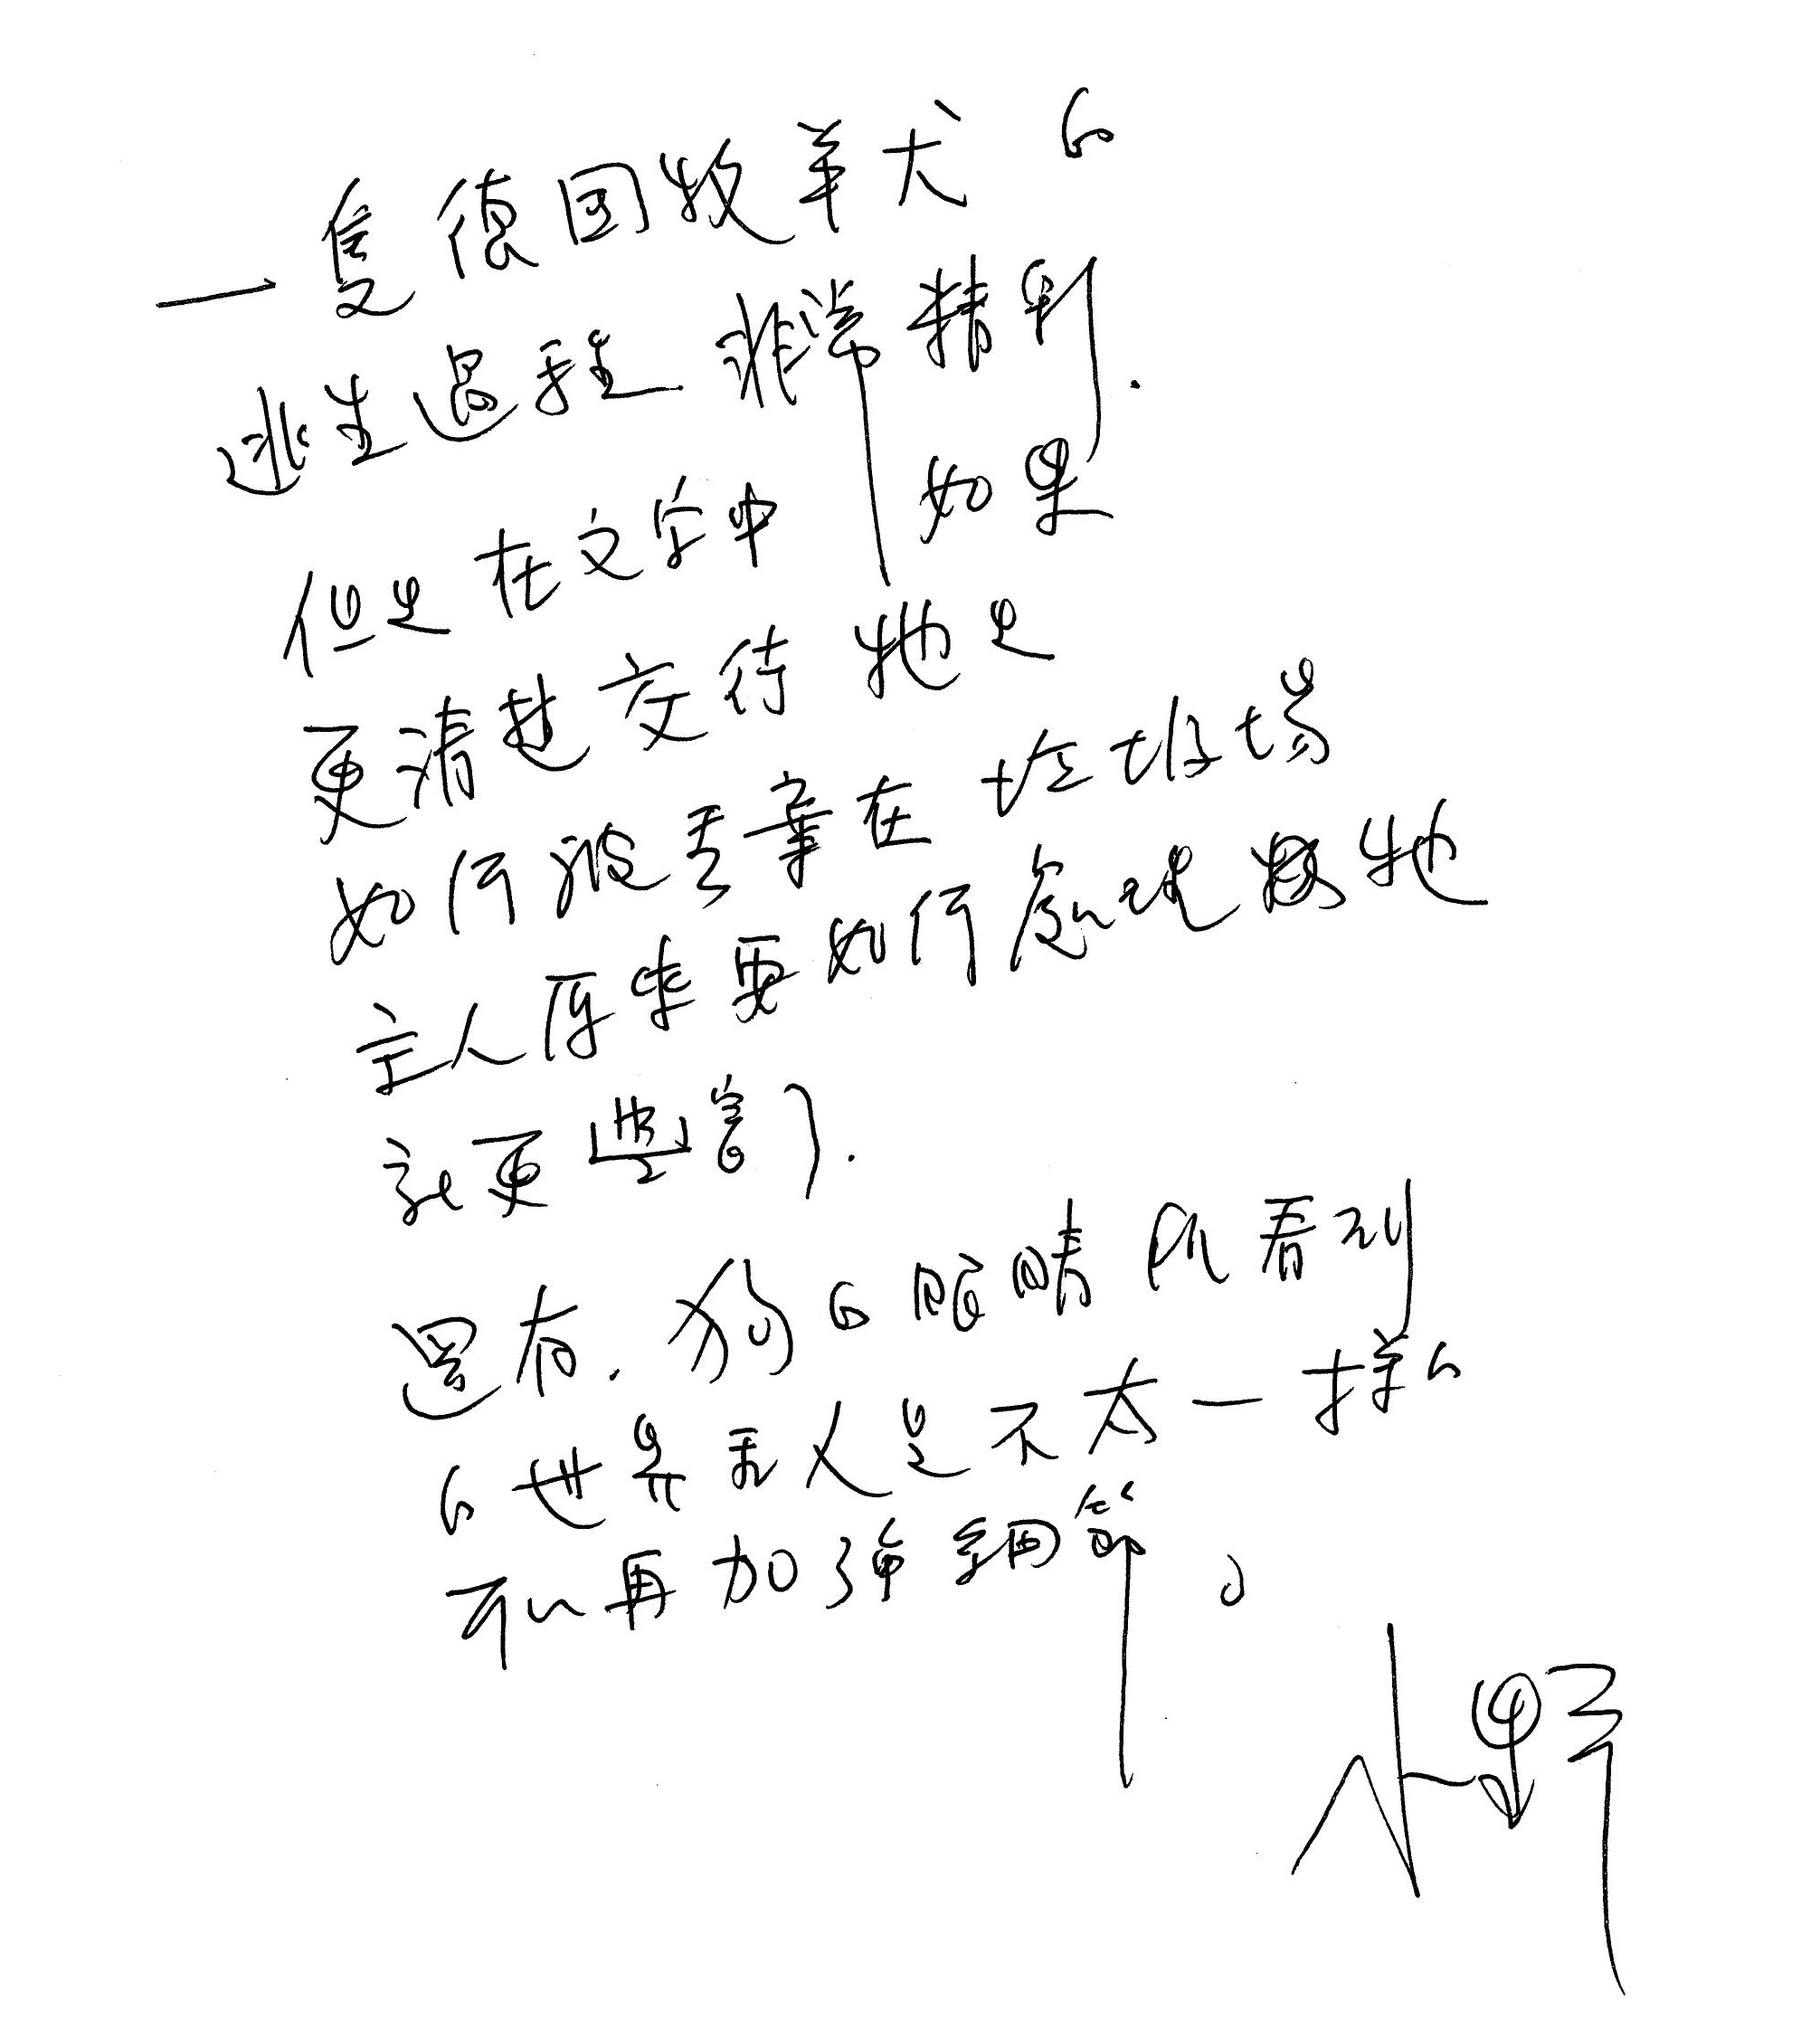 一隻德国牧羊犬的
逃生過程非常精彩.
但是在文字中如果
更清楚交待牠是
如何被丟棄在垃圾場
主人原來要如何處理牠
就更豐富了.
還有.狗的眼睛所看到
的世界和人是不太一樣的
可以再加強細節。
小野